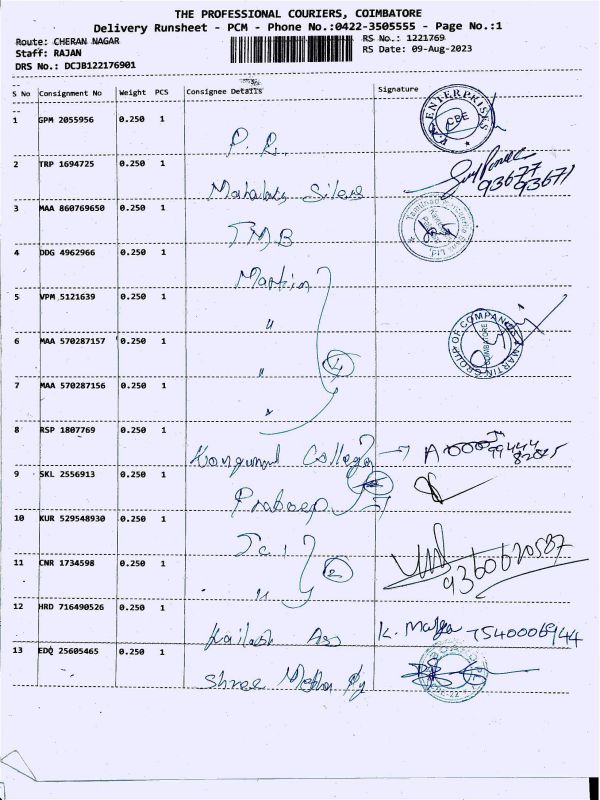 THE PROFESSIONAL COURIERS, COIMBATORE
Delivery Runsheet - PCM - Phone No.:0422-3505555 - Page No.:1
Route: CHERAN NAGAR
RS No.: 1221769
Staff: RAJAN
RS Date: 09-Aug-2023
DRS No.: DCJB122176901
S No Consignment No Weight PCS Consignee Details Signature
1 GPM 2055956 0.250 1
P. R. ENTERPRISES CBE
2 TRP 1694725 0.250 1
93677
93671
3 MAA 860769650 0.250 1
TMB
4 DDG 4962966 0.250 1
Martin
5 VPM 5121639 0.250 1
"
6 MAA 570287157 0.250 1
" 4 MARTIN GROUP OF COMPANIES COIMBATORE
7 MAA 570287156 0.250 1
"
8 RSP 1807769 0.250 1
99444
9 SKL 2556913 0.250 1
10 KUR 529548930 0.250 1
Jai
11 CNR 1734598 0.250 1
" 2 9360620587
12 HRD 716490526 0.250 1
Kailash K. 7540006944
13 EDQ 25605465 0.250 1
Shree